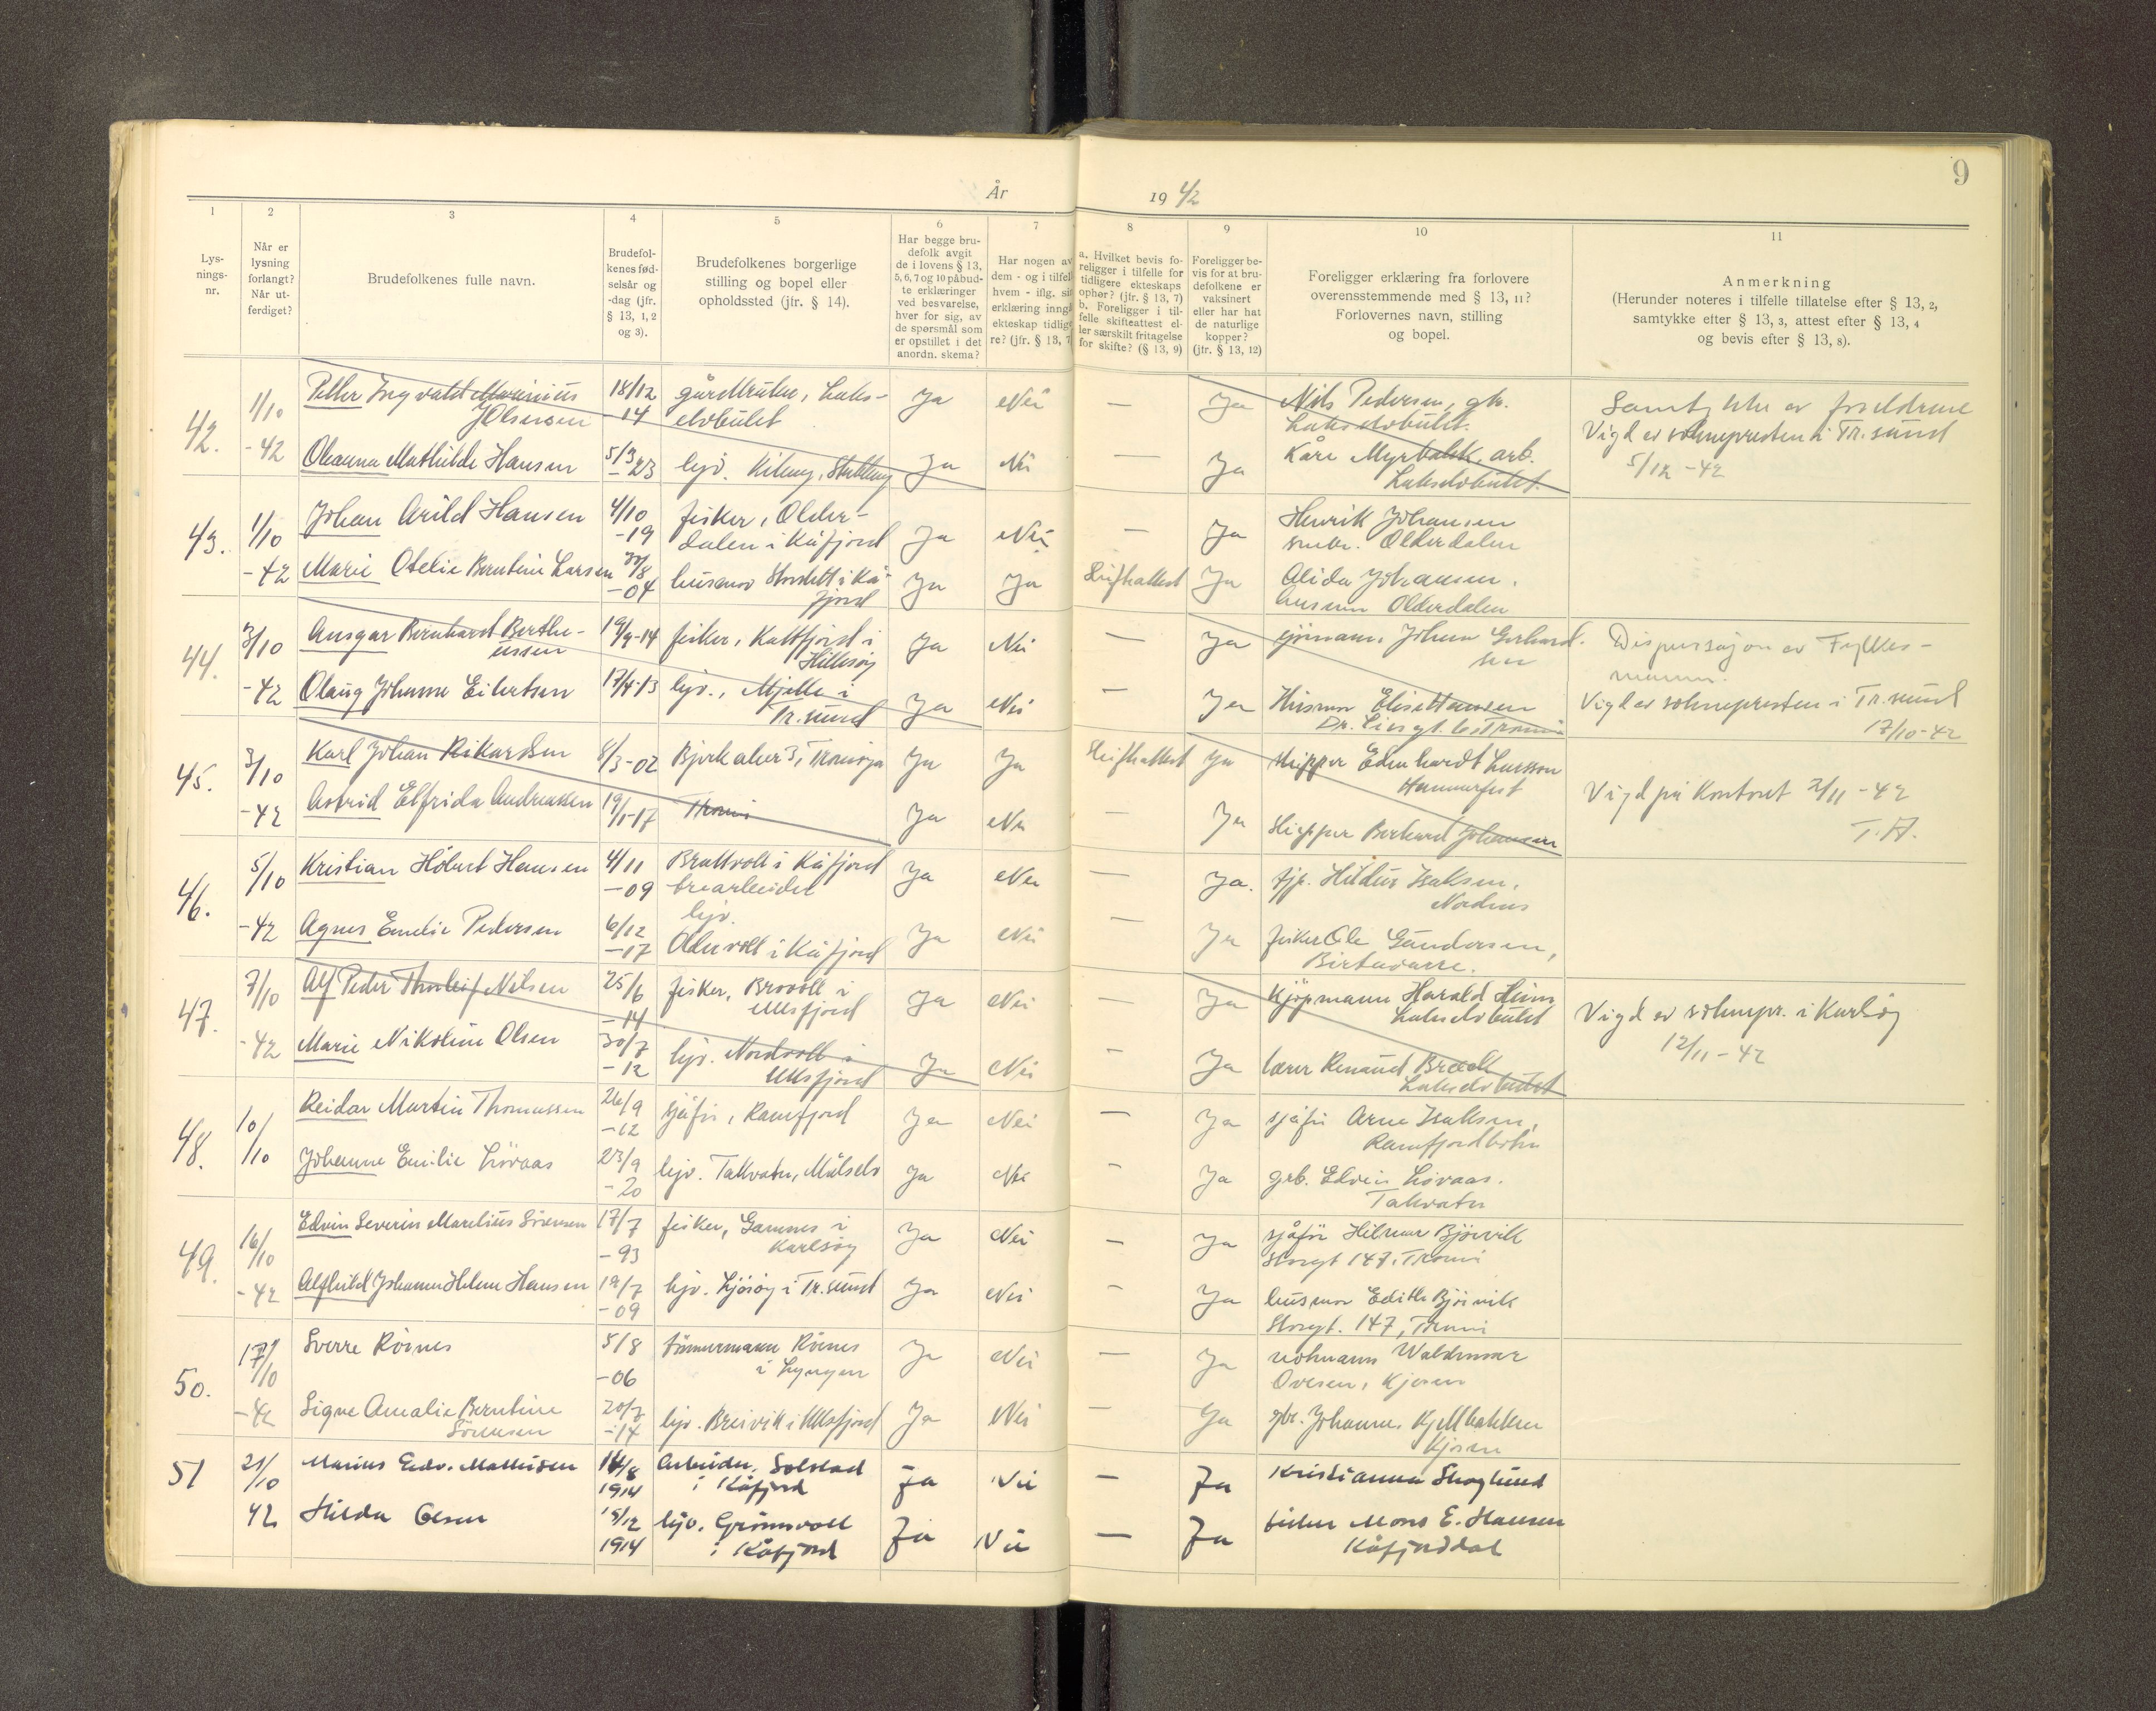 9
År 1942
1
2
3
4
5
6
7
8
9
10
11
Lys-
nings-
nr.
Når er
lysning
forlangt?
Når ut-
ferdiget?
Brudefolkenes fulle navn.
Brudefol-
kenes fød-
selsår og
-dag (jfr.
§ 13, 1, 2
og 3).
Brudefolkenes borgerlige
stilling og bopel eller
opholdssted (jfr. § 14).
Har begge bru-
defolk avgit
de i lovens § 13,
5, 6, 7 og 10 påbud-
te erklæringer
ved besvarelse,
hver for sig, av
de spørsmål som
er opstillet i det
anordn. skema?
Har nogen av
dem - og i tilfel
hvem - iflg. si
erklæring inngå
ekteskap tidlig
re? (jfr. § 13, 7
a. Hvilket bevis fo-
religger i tilfelle for
tidligere ekteskaps
ophør? (jfr. § 13, 7)
b. Foreligger i til-
felle skifteattest el-
ler særskilt fritagelse
for skifte? (§ 13, 9)
Foreligger be-
vis for at bru-
defolkene er
vaksinert
eller har hat
de naturlige
kopper?
(jfr. § 13, 12)
Foreligger erklæring fra forlovere
overensstemmende med § 13, 11?
Forlovernes navn, stilling
og bopel.
Anmerkning
(Herunder noteres i tilfelle tillatelse efter § 13, 2,
samtykke efter § 13, 3, attest efter § 13, 4
og bevis efter § 13, 8).
42. 1/10 Petter Ingvald Marinius 18/12 Laks- Ja Nei — Ja Nils Pedersen, gb.
Olsen 14 elvbukt Lakselvbukt.
-42 Oleanna Mathilde Hansen 5/3 23 Ja Nei — Ja Kåre arb.
Lakselvbukt.
Vigd av soknepresten i Tr.sund
5/12 -42
43. 1/10 Johan Arild Hansen 4/10 fisker, Older- Ja Nei — Ja Henrik Johansen
-19 dalen i Kåfjord Olderdalen
-42 Marie Otelie Berntine Larsen 30/8 husmor i Kå- Ja Ja Skifteattest Ja Alida Johansen.
-04 fjord Olderdalen
44. 3/10 Ansgar Bernhard Berthe- 19/9-14 fisker, Kattfjord i Ja Nei — Ja Johan Gerhard-
ussen Hillesøy sen
-42 Olaug Johanne Eilertsen 17/4-13 Mjelle i Ja Nei — Ja
Tr.sund
Dispensasjon av Fylkes-
mannen.
Vigd av soknepresten i Tr.sund
17/10-42
45. 3/10 Karl Johan Rikardsen 8/3-02 Tromsø Ja Ja Skifteattest Ja skipper Edenhardt Larsson
Hammerfest
-42 Astrid Elfrida Andreassen 19/1-17 Tromsø Ja Nei — Ja Skipper Johansen
Vigd på Kontoret 2/11 -42
T.H.
46. 5/10 Kristian Hilbert Hansen 4/11 Brattvoll i Kåfjord Ja Nei — Ja. Hildur Isaksen,
-09 Nordnes
-42 Agnes Emelie Pedersen 6/12 Ja Nei — Ja fisker Ole Gundersen,
-17 Oldervoll i Kåfjord Birtavarre.
47. 7/10 Alf Peder Thorleif Nilsen 25/6 fisker, i Ja Nei — Ja Kjøpmann Harald Heim
-14 Ullsfjord Lakselvbukt
-42 Marie Nikoline Olsen 30/7 Nordvoll i Ja Nei — Ja lærer
-12 Ullsfjord Lakselvbukt
Vigd av soknepr. i Karlsøy
12/11 -42
48. 10/10 Reidar Martin Thomassen 26/9 sjåfør, Ramfjord Ja Nei — Ja sjåfør Arne Isaksen,
-12 Ramfjordbotn
Johanne Emilie Løvaas 23/9 Takvatn, Målselv Ja Nei — Ja Edvin Løvaas.
-20 Takvatn
49. 16/10 Edvin Severin Marelius Sørensen 17/7 fisker, Gamnes i Ja Nei — Ja sjåfør Hilmar Bjørvik
-93 Karlsøy Storgt 147, Tromsø
-42 Alfhild Johanne Helene Hansen 19/7 i Tr.sund Ja Nei — Ja husmor Edith Bjørvik
-09 Storgt. 147, Tromsø
50. 17/10 Sverre Röines 5/8 tømmermann Röines Ja Nei — Ja Waldemar
-06 i Lyngen Ovesen, Kjosen
-42 Signe Amalie Berntine 20/7 Breivik i Ullsfjord Ja Nei — Ja gbr. Johannes Kjellbakken
Sörensen -14 Kjosen
51 21/10 Marius Edv. Mathisen 14/8 Arbeider, Solstad Ja Nei — Ja Kristianna Skoglund
1914 i Kåfjord
42 Hilda Olsen 15/12 Grønnvoll Ja Nei — Ja fisker Mons E. Hansen
1914 i Kåfjord Kåfjorddal